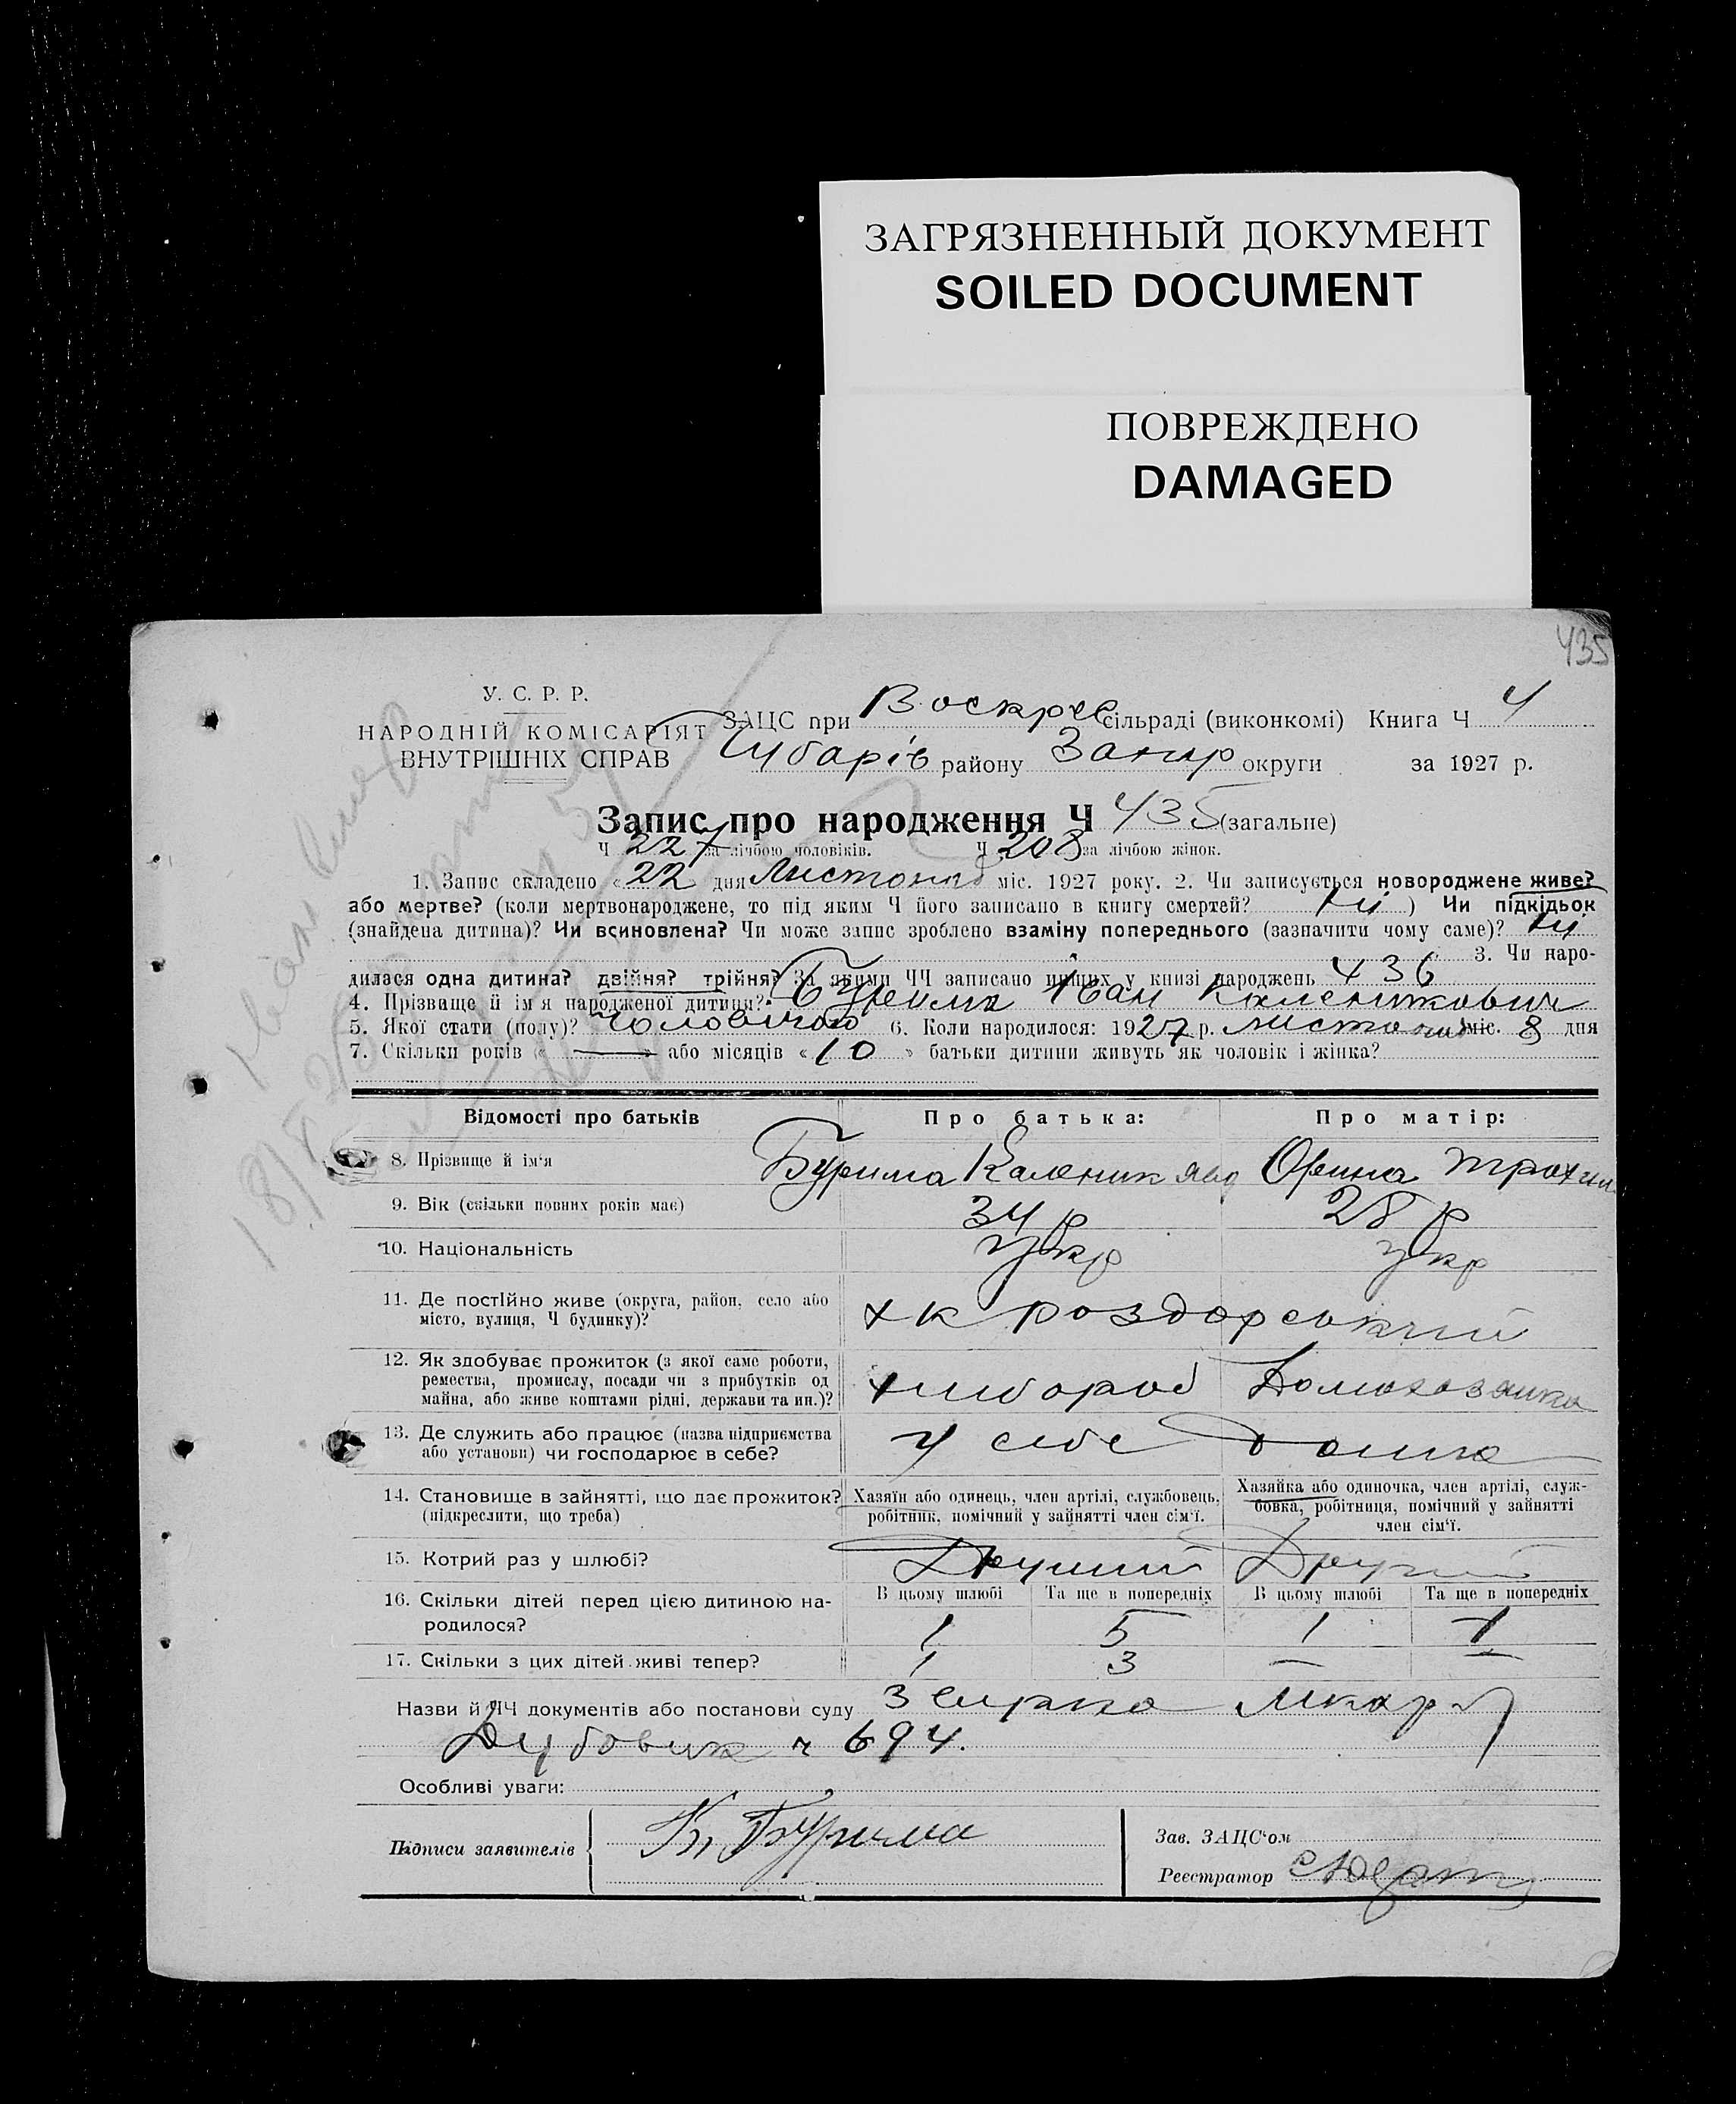 ЗАГРЯЗНЕННЫЙ ДОКУМЕНТ
SOILED DOCUMENT
ПОВРЕЖДЕНО
DAMAGED
435
У. С. Р. Р.
НАРОДНІЙ КОМІСАРІЯТ
ВНУТРІШНІХ СПРАВ
ЗАЦС при Воскресе сільраді (виконкомі) Книга Ч 4
Чубарів району Запор округи за 1927 р.
Запис про народження Ч 435 (загальне)
Ч 227 за лічбою чоловіків. Ч 208 за лічбою жінок.
1. Запис складено «22» дня Листопад міс. 1927 року. 2. Чи записується новороджене живе?
або мертве? (коли мертвонароджене, то під яким Ч його записано в книгу смертей? ні) Чи підкідьок
(знайдена дитина)? Чи всиновлена? Чи може запис зроблено взаміну попереднього (зазначити чому саме)? ні
3. Чи наро-
дилася одна дитина? двійня? трійня? За якими ЧЧ записано инших у книзі народжень 436
4. Прізвище й ім'я народженої дитини? Бурима Іван Каленикович
5. Якої стати (полу)? Чоловічої 6. Коли народилося: 1927 р. листопад міс. 8 дня
7. Скільки років «—» або місяців «10» батьки дитини живуть як чоловік і жінка?
Відомості про батьків Про батька: Про матір:
8. Прізвище й ім'я Бурима Каленик Орина Трохим
9. Вік (скільки повних років має) 34 р 28 р
10. Національність Укр Укр
11. Де постійно живе (округа, район, село або
місто, вулиця, Ч будинку)? хк роздорський
12. Як здобуває прожиток (з якої саме роботи,
ремества, промислу, посади чи з прибутків од
майна, або живе коштами рідні, держави та ин.)? хлібороб Домохозяйка
13. Де служить або працює (назва підприємства
або установи) чи господарює в себе? у себе дома
14. Становище в зайнятті, що дає прожиток?
(підкреслити, що треба)
Хазяїн або одинець, член артілі, службовець,
робітник, помічний у зайнятті член сім'ї.
Хазяйка або одиночка, член артілі, служ-
бовка, робітниця, помічний у зайнятті
член сім'ї.
15. Котрий раз у шлюбі? Другий Другий
В цьому шлюбі Та ще в попередніх В цьому шлюбі Та ще в попередніх
16. Скільки дітей перед цією дитиною на-
родилося? 1 5 1 1
17. Скільки з цих дітей живі тепер? 1 3 — —
Назви й ЧЧ документів або постанови суду
Дубовик ч 694.
Особливі уваги:
Підписи заявителів К. Бурима
Зав. ЗАЦС'ом
Реєстратор